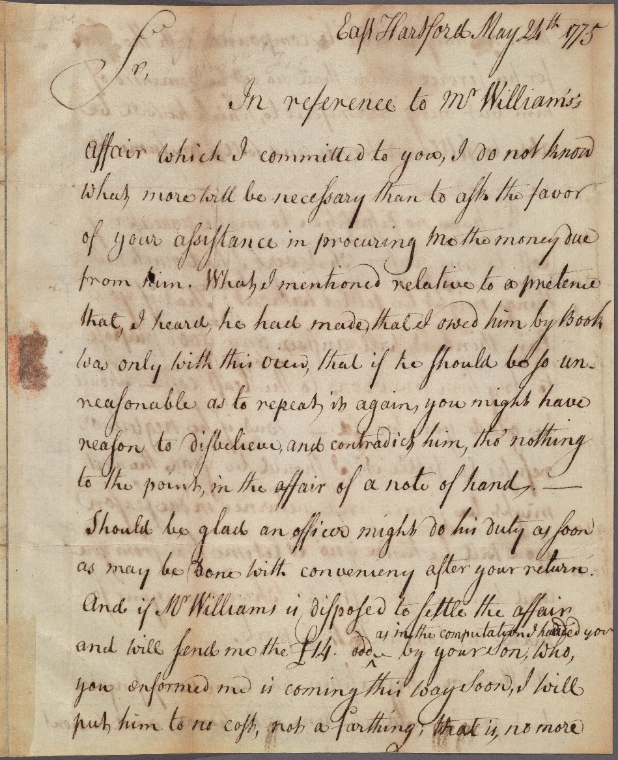 East Hartford May 24th 1775
Sr,
In reference to Mr Williams's
affair which I committed to you, I do not know
what more will be necessary than to ask the favor
of your assistance in procuring me the money due
from him. What I mentioned relative to a pretence
that, I heard, he had made, that I owed him by Book
was only with this view, that if he should be so un-
reasonable as to repeat it again, you might have
reason to disbelieve, and contradict him, tho' nothing
to the point, in the affair of a note of hand. —
Should be glad an officer might do his duty as soon
as may be done with conveniency after your return.
And if Mr Williams is disposed to settle the affair
as in the computation I handed you
and will send me the £14. odd ‸ by your Son, who,
you informed me is coming this way soon, I will
put him to no cost, not a farthing, that is, no more